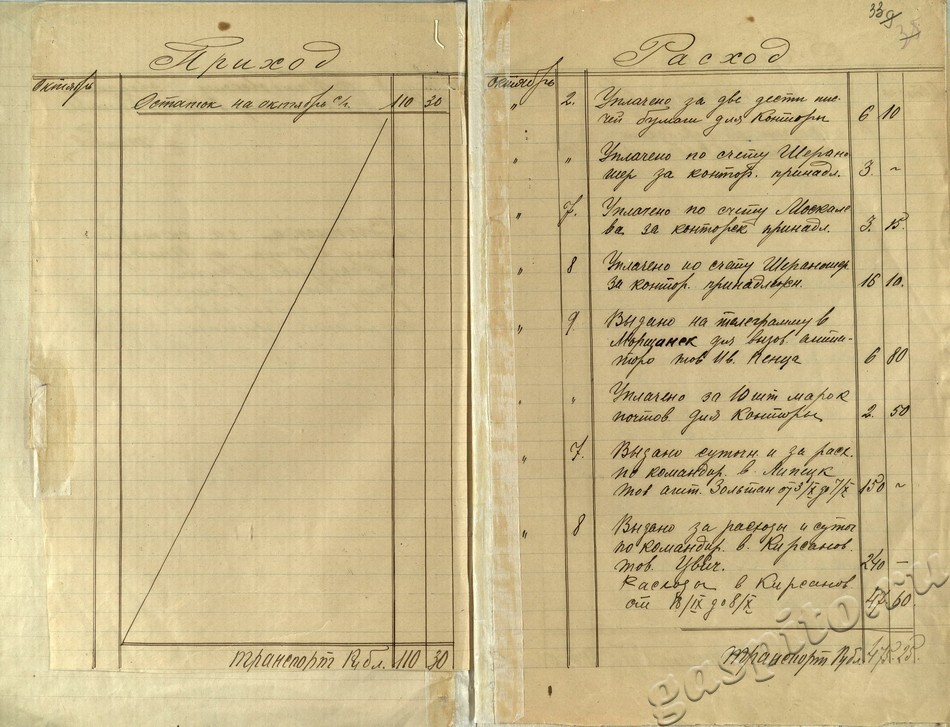 Приход
Октябрь
Остаток на октябрь с/г. 110 30
транспорт Рубл. 110 30
33
Расход
Октябрь
" 2. Уплачено за две дести пис-
чей бумаги для Конторы 6 10
" " Уплачено по счету Шерано
шер за контор. принадл. 3. ~
" 7. Уплачено по счету Москале
ва за конторск принадл. 3. 15.
" 8 Уплачено по счету Шераношер
за контор. принадлежн. 16 10.
" 9. Выдано на телеграмму в
Моршанск для вызов агита-
тора тов Ив. Кенца 6 80
" " Уплачено за 10 шт марок
почтов. для Конторы 2. 50
" 7. Выдано суточн. и за расх.
по командир. в. Липецк
тов агит. Зольтан от 3/X до 7/X 150 ~
" 8 Выдано за расходы и суточ
по командир. в. Кирсанов.
тов. Увич. 240 —
Расходы в Кирсанов
от 18/IX до 8/X. 47. 60
транспорт Рубл. 475. 25.
gaspito.ru